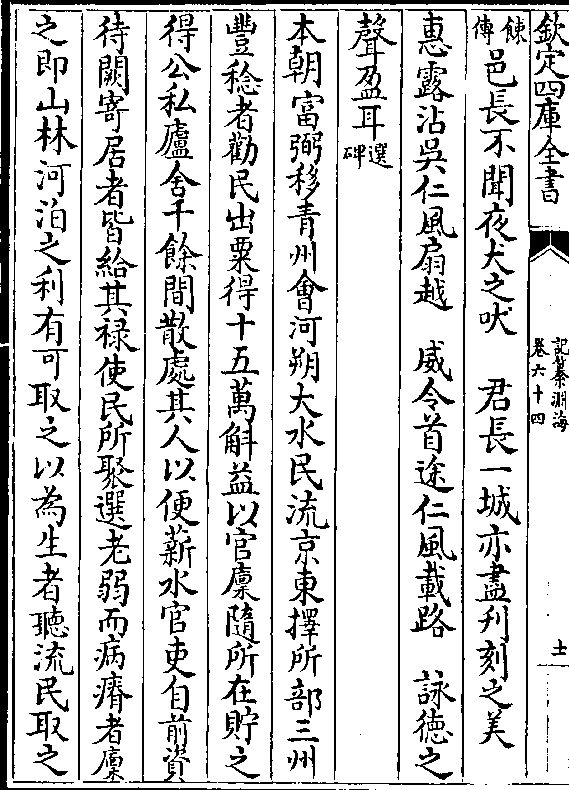 欽定四庫全書
記纂淵海
卷六十四
十一
餗傳邑長不聞夜犬之吠　君長一城亦盡刋刻之美
惠露沾吳仁風扇越　威令首途仁風載路　詠德之
聲盈耳選碑
本朝富弼移青州會河朔大水民流京東擇所部三州
豐稔者勸民出粟得十五萬斛益以官廪隨所在貯之
得公私廬舍千餘間散處其人以便薪水官吏自前資
待闕寄居者皆給其禄使民所聚選老弱而病瘠者廪
之即山林河泊之利有可取之以為生者聽流民取之